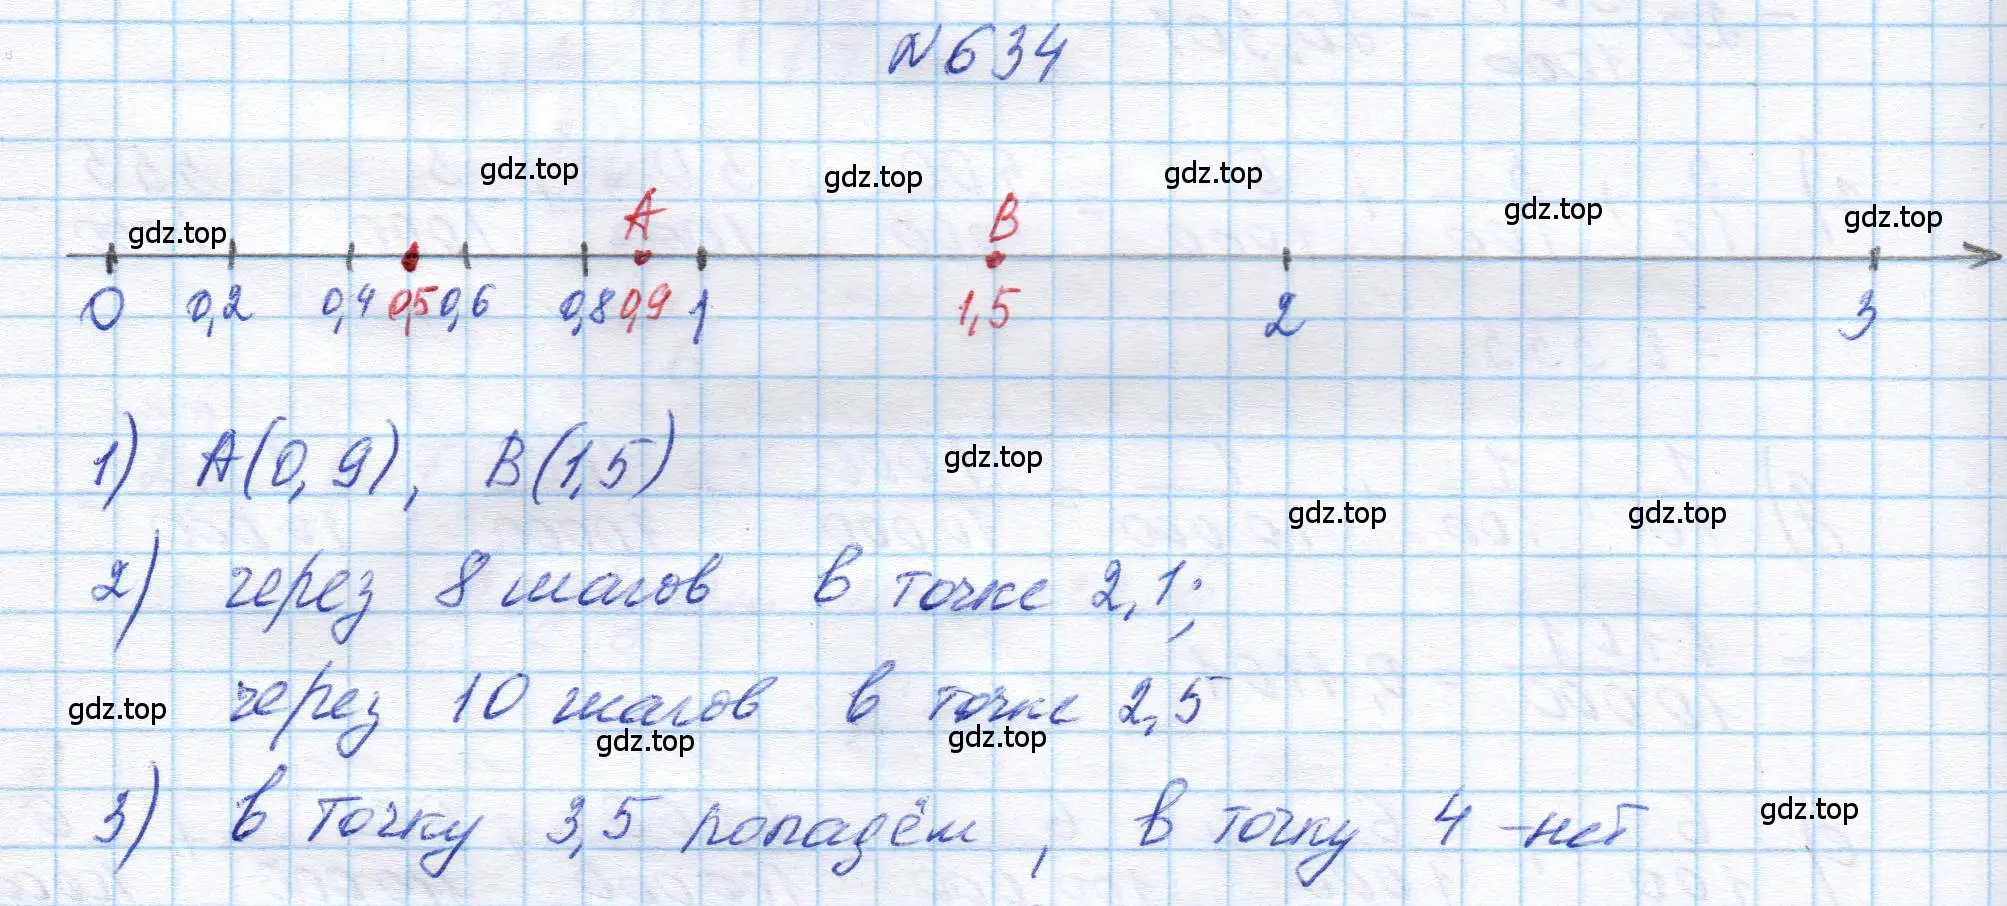 №634
gdz.top gdz.top gdz.top gdz.top gdz.top gdz.top
A B
0 0,2 0,4 0,5 0,6 0,8 0,9 1 1,5 2 3
1) A(0,9), B(1,5)
gdz.top gdz.top gdz.top
2) через 8 шагов в точке 2,1;
через 10 шагов в точке 2,5
gdz.top gdz.top gdz.top
3) в точку 3,5 попадём, в точку 4 -нет
gdz.top